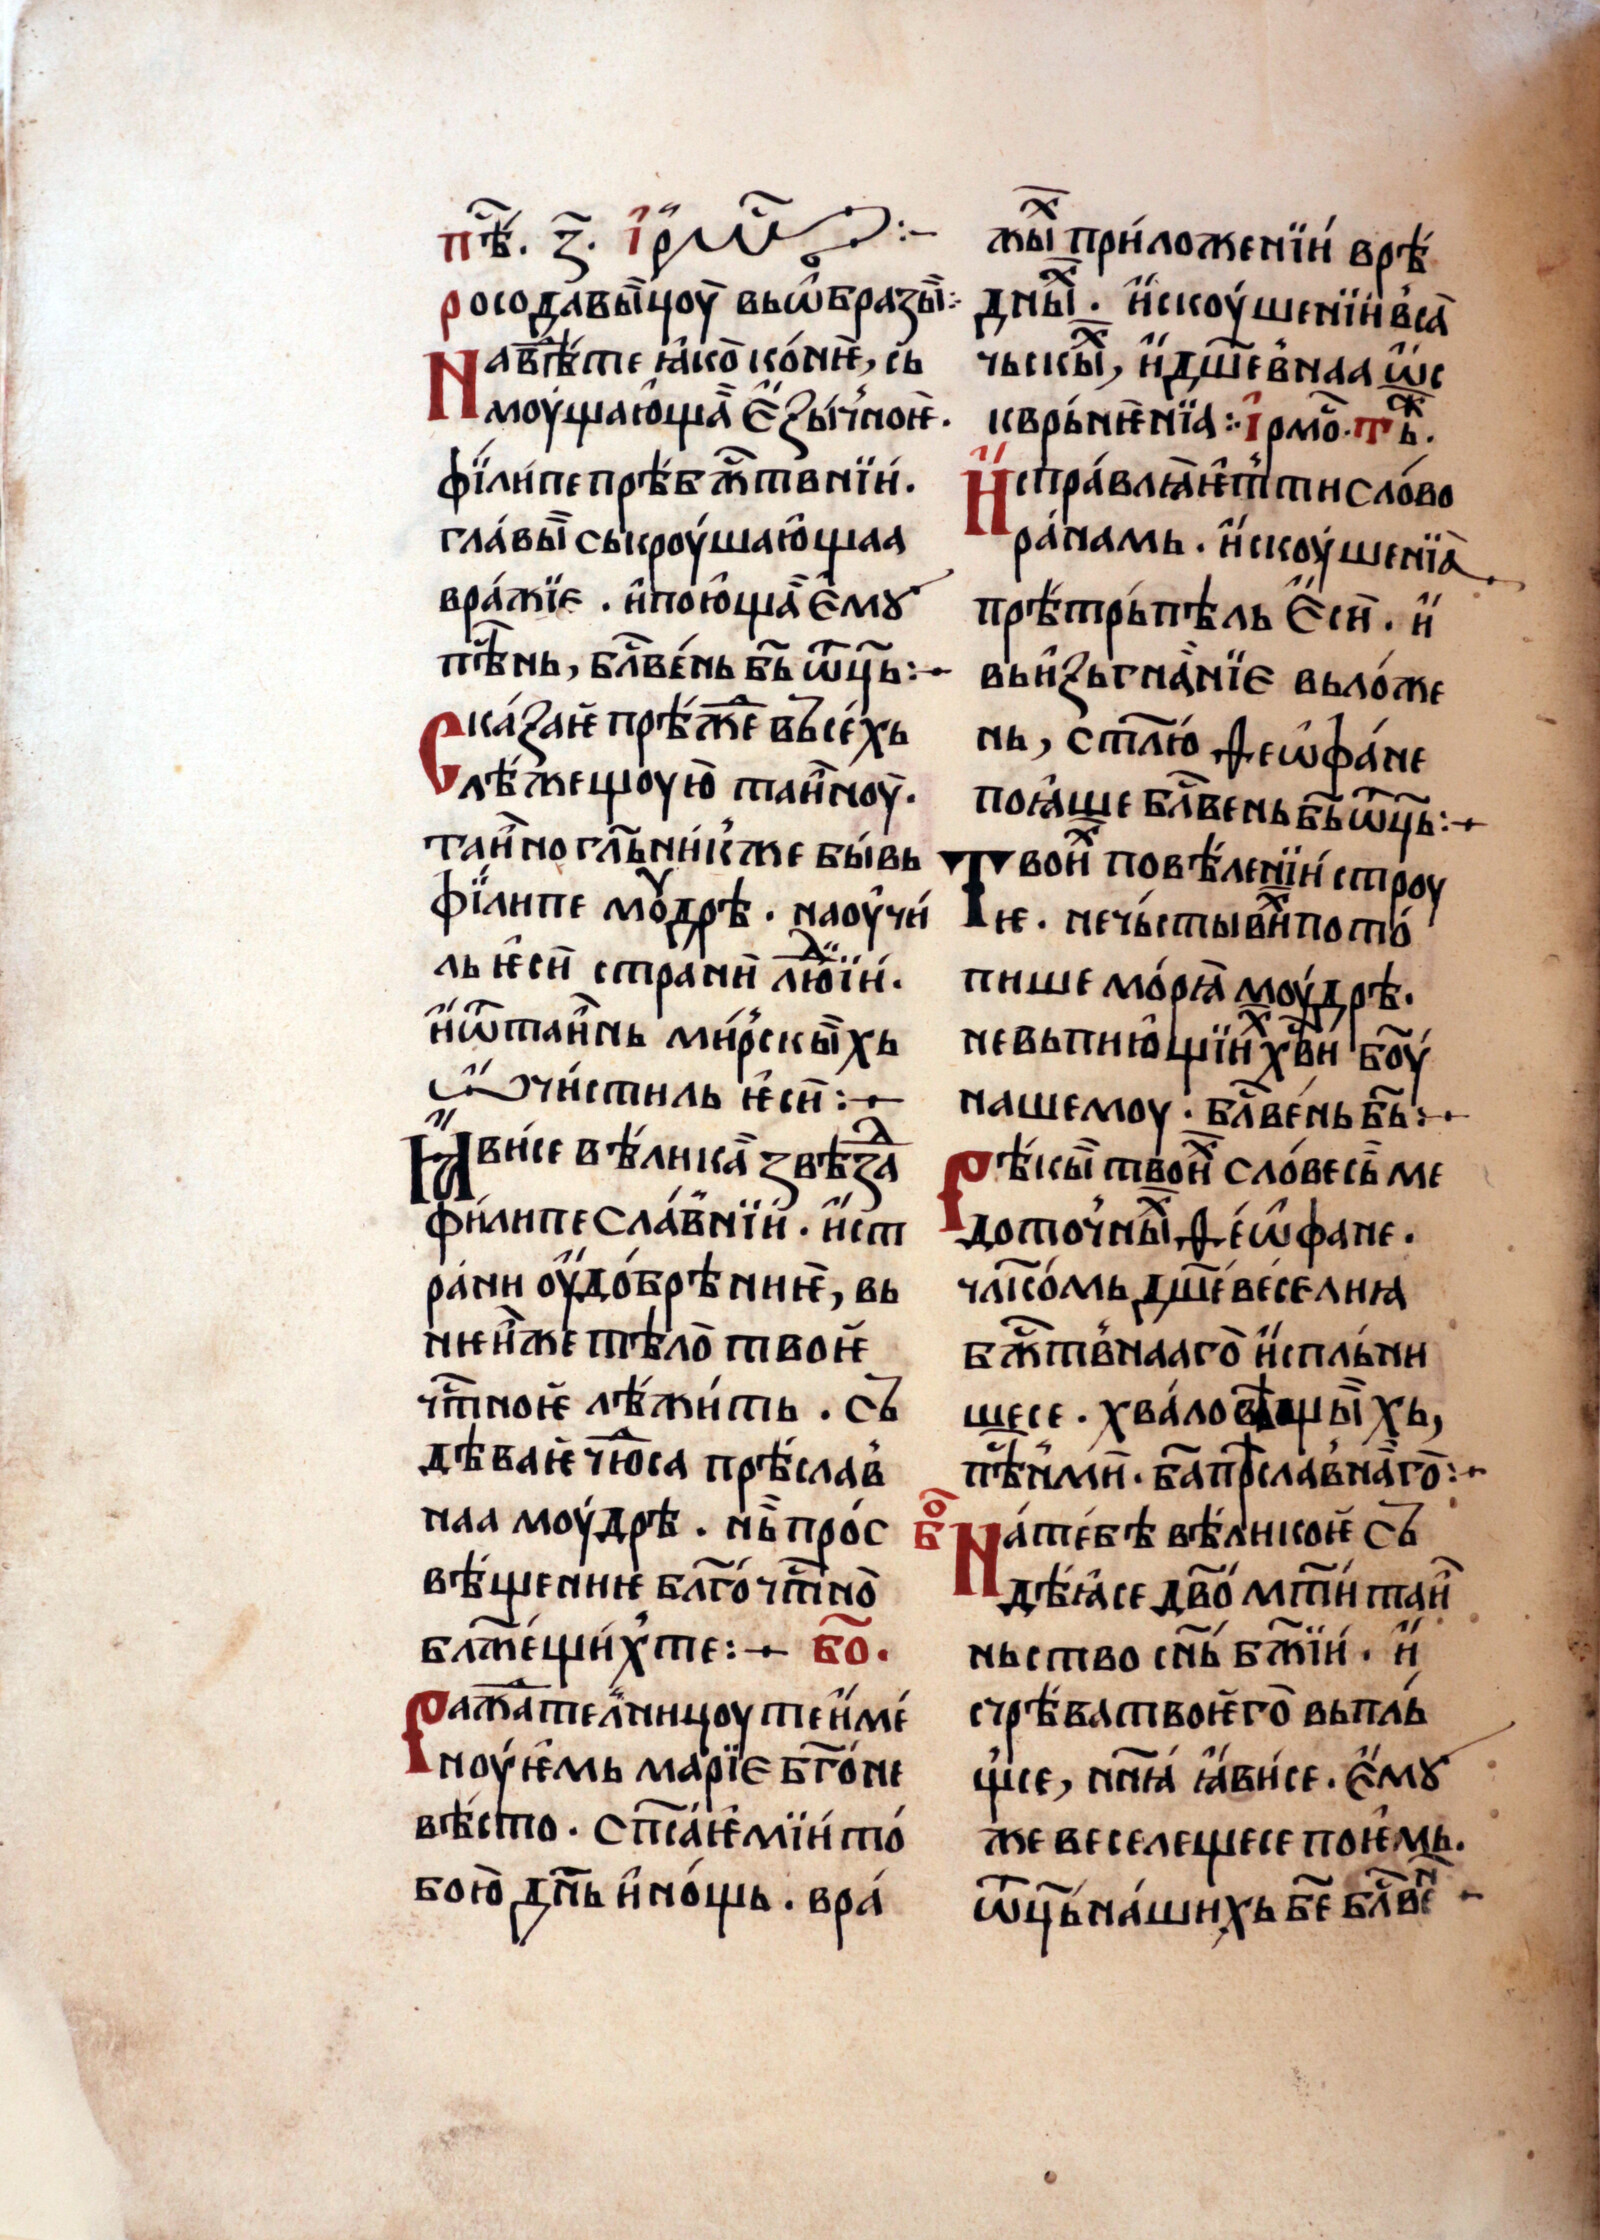 пѣ҇. з҃. і҆рмѡ҇ :–
росодавы̏цоу̏ вьѡ̑бразы̏:·
Навѣ҇те ꙗ҆ко̀ ко́нѥ, сь
моущаю̑ща̏ є҆зы́ч̾ноѥ.
фїли́пе прѣ́бж҇твнїи.
гла́вы̏ ськроу́шаю̑щаа
вра́жїе . и҆пою̑ща̏ є҆мꙋ
пѣ҇нь, бл҃ве́нь бь҃ ѿц҃ь:–
Ска́заѥ прѣ́ж҇е вьсе́хь
лѣ́жещоую̀ таи̑ноу̏.
таи̑но гл҃ьни́к̾же бы́вь
фїлипе мо́ꙋдрѣ . наоу̑чи́
ль ѥ҆сѝ страни̏ лю̑дїи.
и҆ѿтаи̑нь ми́р̾скы̏хь
ѡ҆чи́стиль ѥ҆сѝ:–
Ꙗ҆ви́се вѣ́лика̏ звѣзда̀
фи́липе сла́в̾нїи . и҆ст
ра́ни оу҆до́брѣниѥ̏, вь
нѥи̑же тѣ́ло̀ твоѥ̀
чт҇ноѥ лѣ́жи́ть . сь
дѣваѥ чю̑дса прѣ́слав̾
наа моу́дрѣ . нь̏ про́с
вѣ́щениѥ бл҃го́чт҇но̀
блж҃е́щи́х̾те:– бо҃.
Раж҇а̑те л̾ницоу те и҆ме́
ноу́ѥмь марїє бг҃о́не
вѣ́сто . сп҃са́ѥмїи то́
бою̀ дн҃ь и҆но́щь . вра́
жы̏х при́ложенїи врѣ́
дны̏х . и҆скоу́шенїи в̾са̏
чьскы̏х, и҆дш҃ев̾наа ѡ҆с
квр́ьнѥнїа:· і҆рмо҇.тъ̏ж.
И҆спра́влꙗѥт̾ ти сло́во
ра́намь . и҆скоу́шенїа̏
прѣ́трь́пѣль є҆сѝ . и҆
вьи҆зьгна̏нїє вьло́же
нь, ст҃лю́ ѳеѡ̑фа́не
поꙗ́ше бл҃вень бь҃ ѿц҃ь:–
Твои̏х повѣленїи строу
ѥ . нечь́стывы̏х пото́
пише мо́рꙗ моу́дрѣ.
невьпию̑щїи̏х хв҃и бо҃у́
нашемоу . бл҃ве́нь бь҃:–
Рѣ́кы̏ твои̏х сло́весь̏ ме
доточ̾ны̏х ѳе́ѡ̑фане.
чл҃ко́мь дш҃е́ ве́селиꙗ
бж҇тв̾нааго̀ и҆спль́ни
шесе . хва́ловѣщы̏хь,
пѣ҇н̾мѝ . ба҃ прѣ҇слав̾на̏го̀:–
бо҃ На́те́бѣ вѣ́ликоѥ сь
дѣ́ꙗсе дв҃о́ мт҃и таи̏
ньство сн҃ь бж҃їи . и҆
с̾чрѣ́ва твоѥ́го̀ вьпль́
щ̾се, нн҃ꙗ́ ꙗ҆ви́се . є҆мꙋ
же веселещесе поѥ̑мь.
ѿц҃ьна́шихь бе҃ бл҃ве́н –